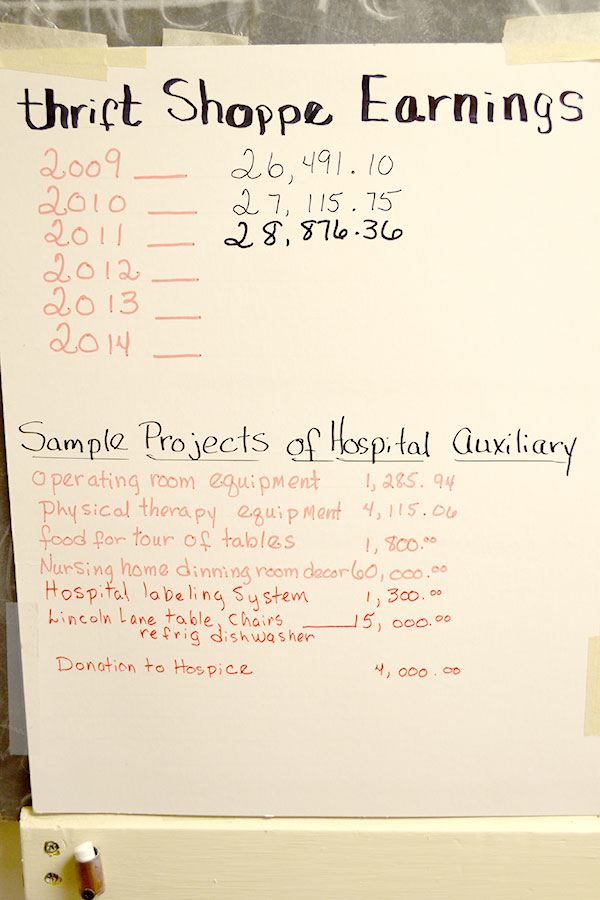 thrift Shoppe Earnings
2009 ___ 26,491.10
2010 ___ 27,115.75
2011 ___ 28,876.36
2012 ___
2013 ___
2014 ___
Sample Projects of Hospital Auxiliary
Operating room equipment 1,285.94
Physical therapy equipment 4,115.06
food for tour of tables 1,800.00
Nursing home dinning room decor 60,000.00
Hospital labeling System 1,300.00
Lincoln Lane table, Chairs ___ 15,000.00
refrig dishwasher
Donation to Hospice 4,000.00